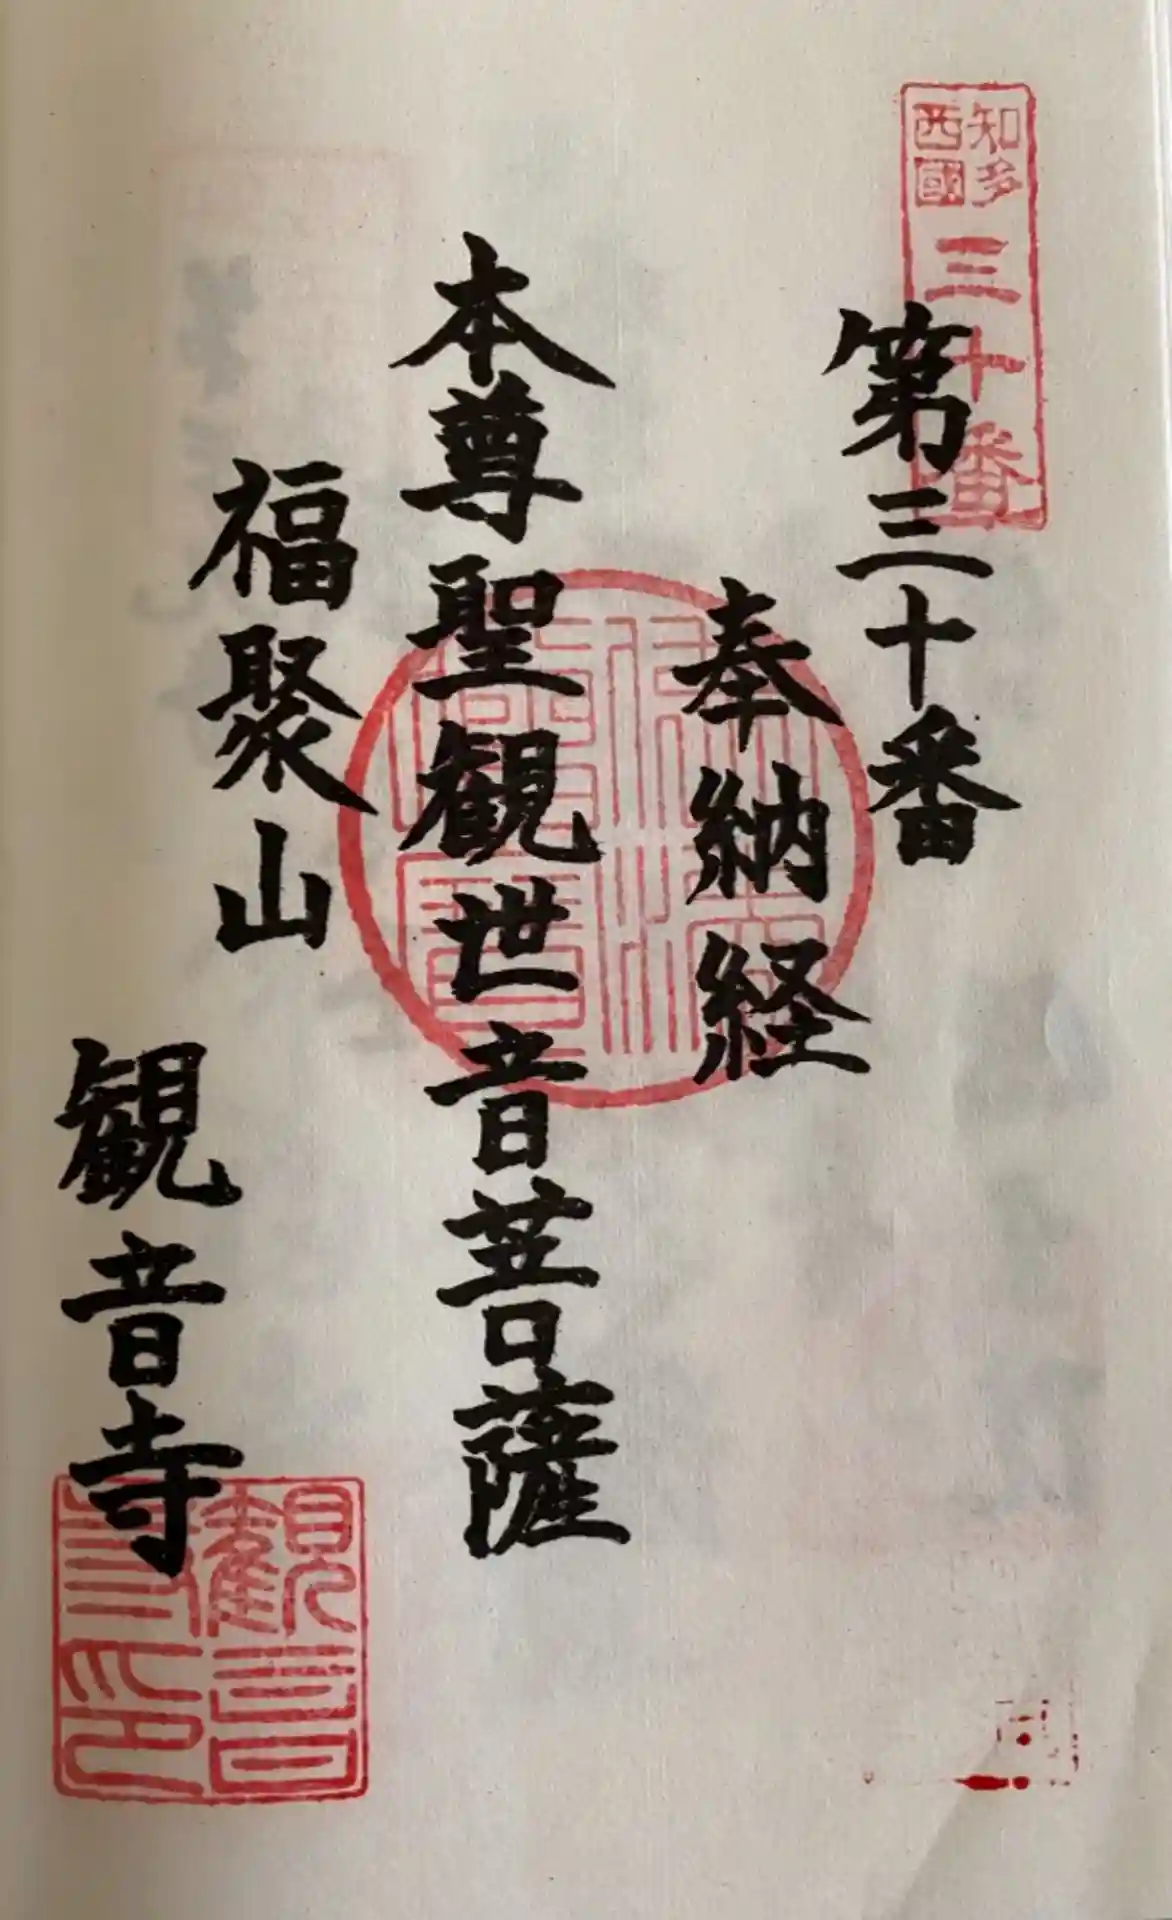 知多
西國
三十番
第三十番
奉納経
本尊聖観世音菩薩
福聚山
観音寺
觀音
寺印